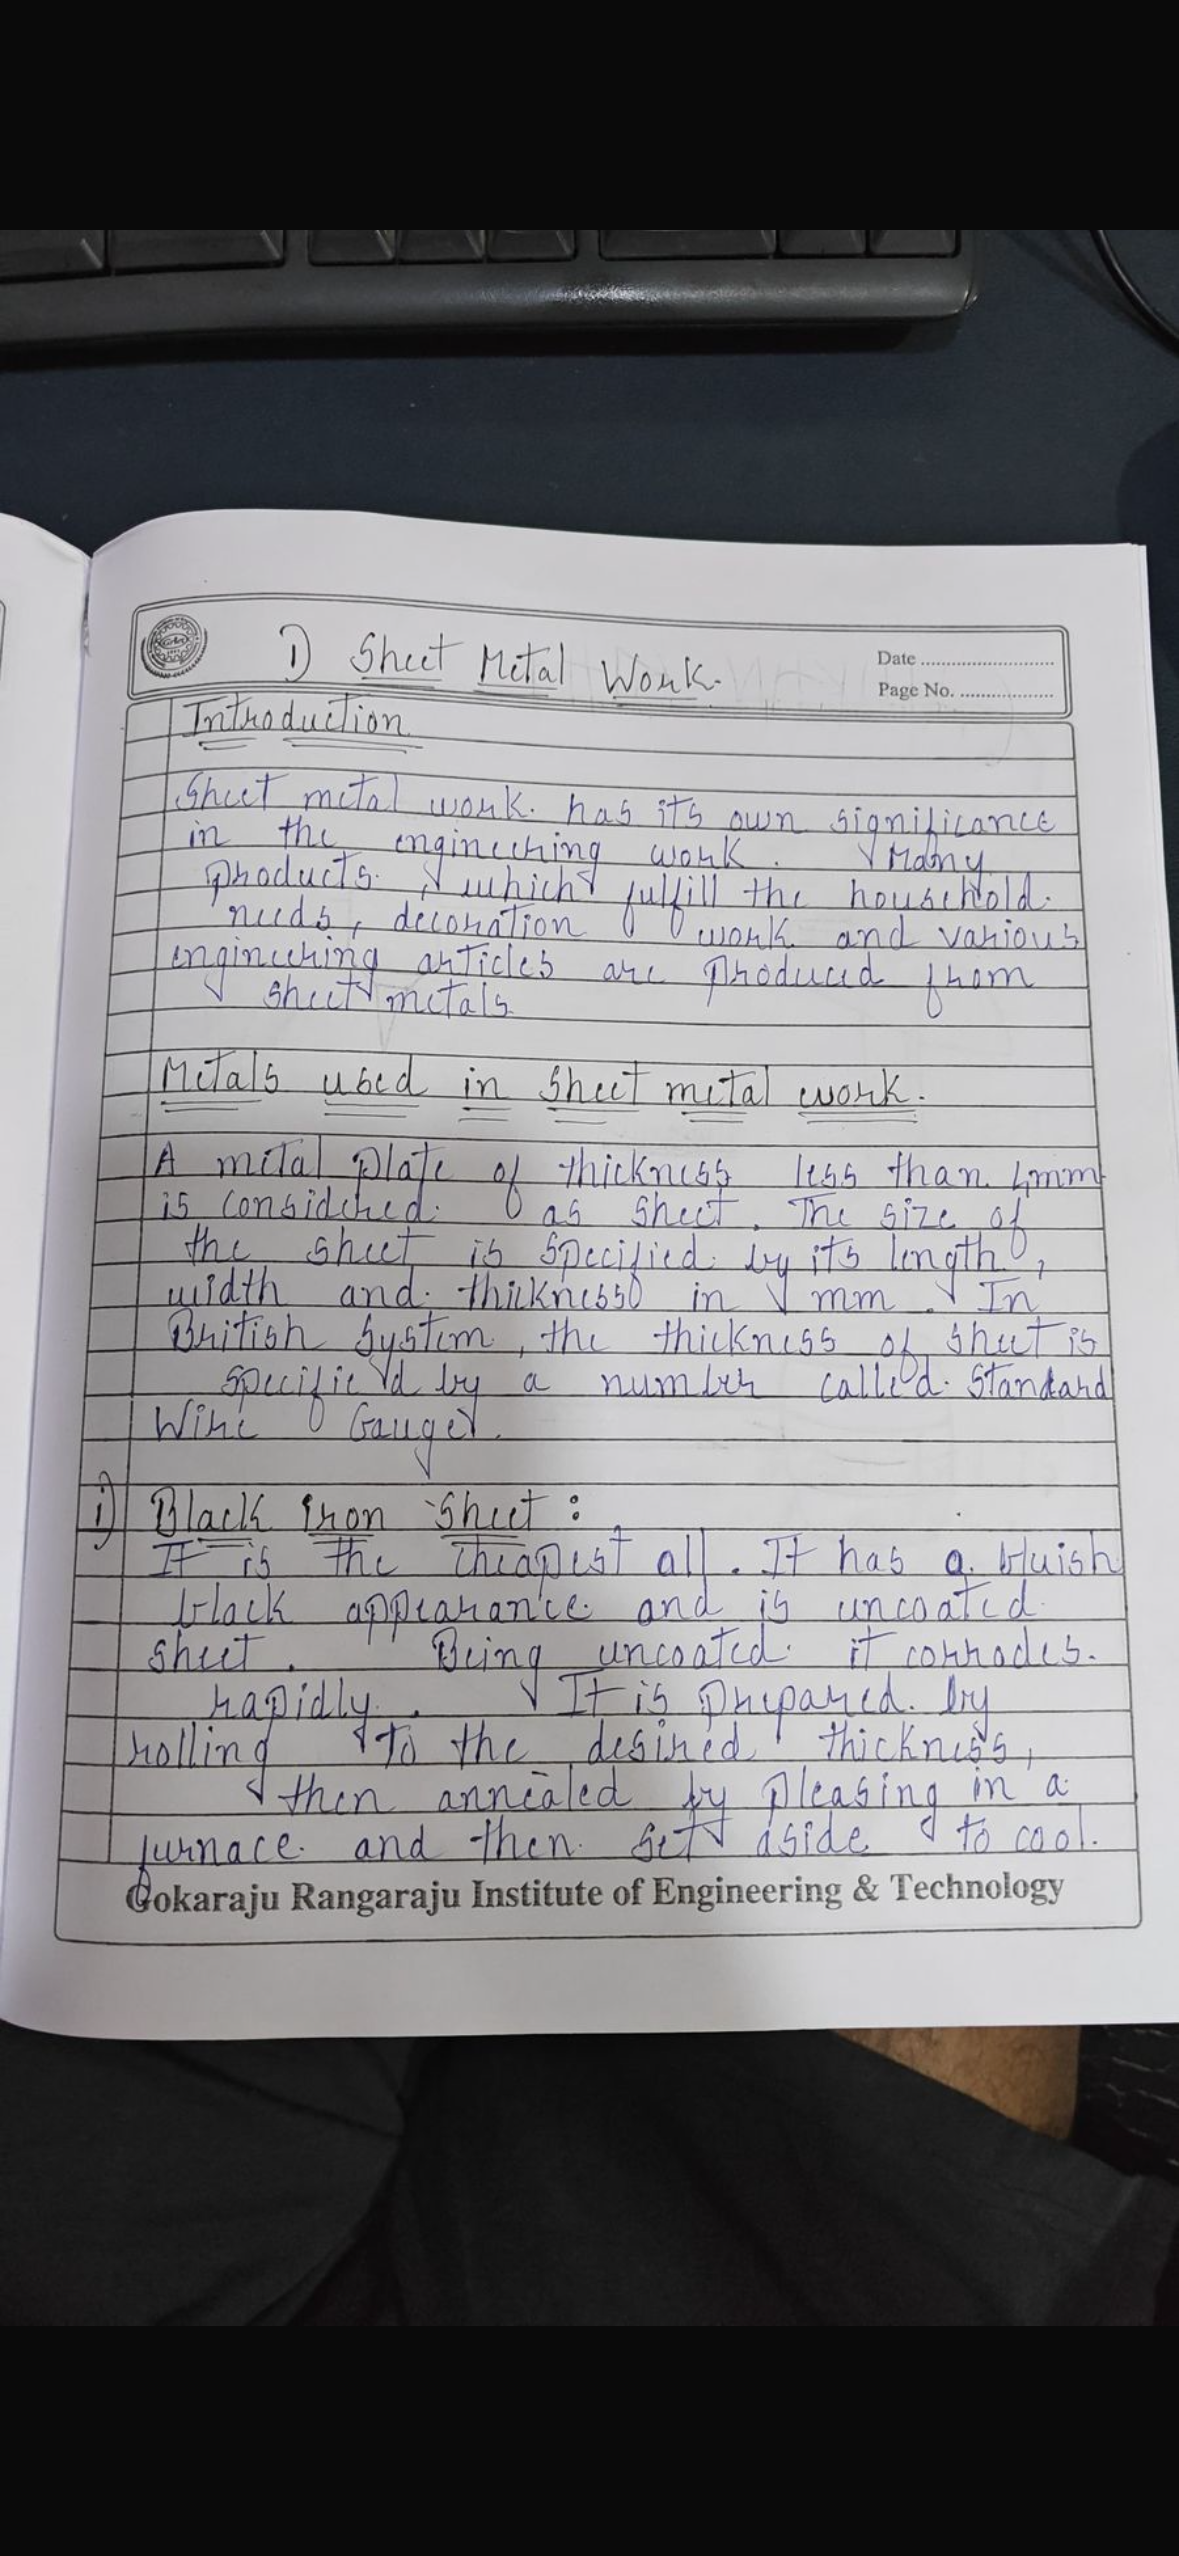 1) Sheet Metal Work.
Date ..........................
Page No. ..................
Introduction
Sheet metal work. has its own significance
in the engineering work. Many
products, which fulfill the household.
needs, decoration work and various
engineering articles are produced from
sheet metals.
Metals used in sheet metal work.
A metal plate of thickness less than 4mm
is considered. as sheet. The size of
the sheet is specified. by its length,
width and. thickness in mm. In
British System, the thickness of sheet is
specified by a number called. Standard
Wire Gauge.
i) Black Iron Sheet :
It is the cheapest all. It has a bluish
black appearance. and is uncoated.
sheet. Being uncoated. it corrodes.
rapidly. It is prepared. by
rolling to the desired thickness,
then annealed by pleasing in a
furnace. and then. set aside to cool.
Gokaraju Rangaraju Institute of Engineering & Technology